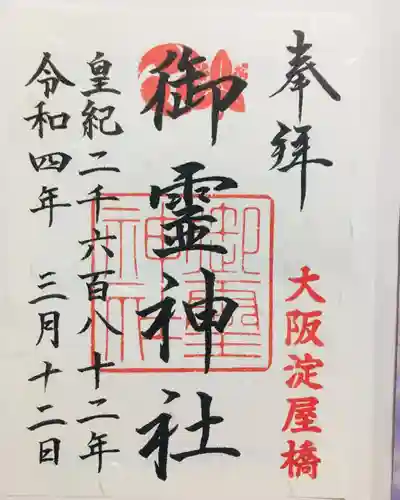 奉拝
大阪淀屋橋
御霊神社
皇紀二千六百八十二年
令和四年 三月十二日
御霊神社